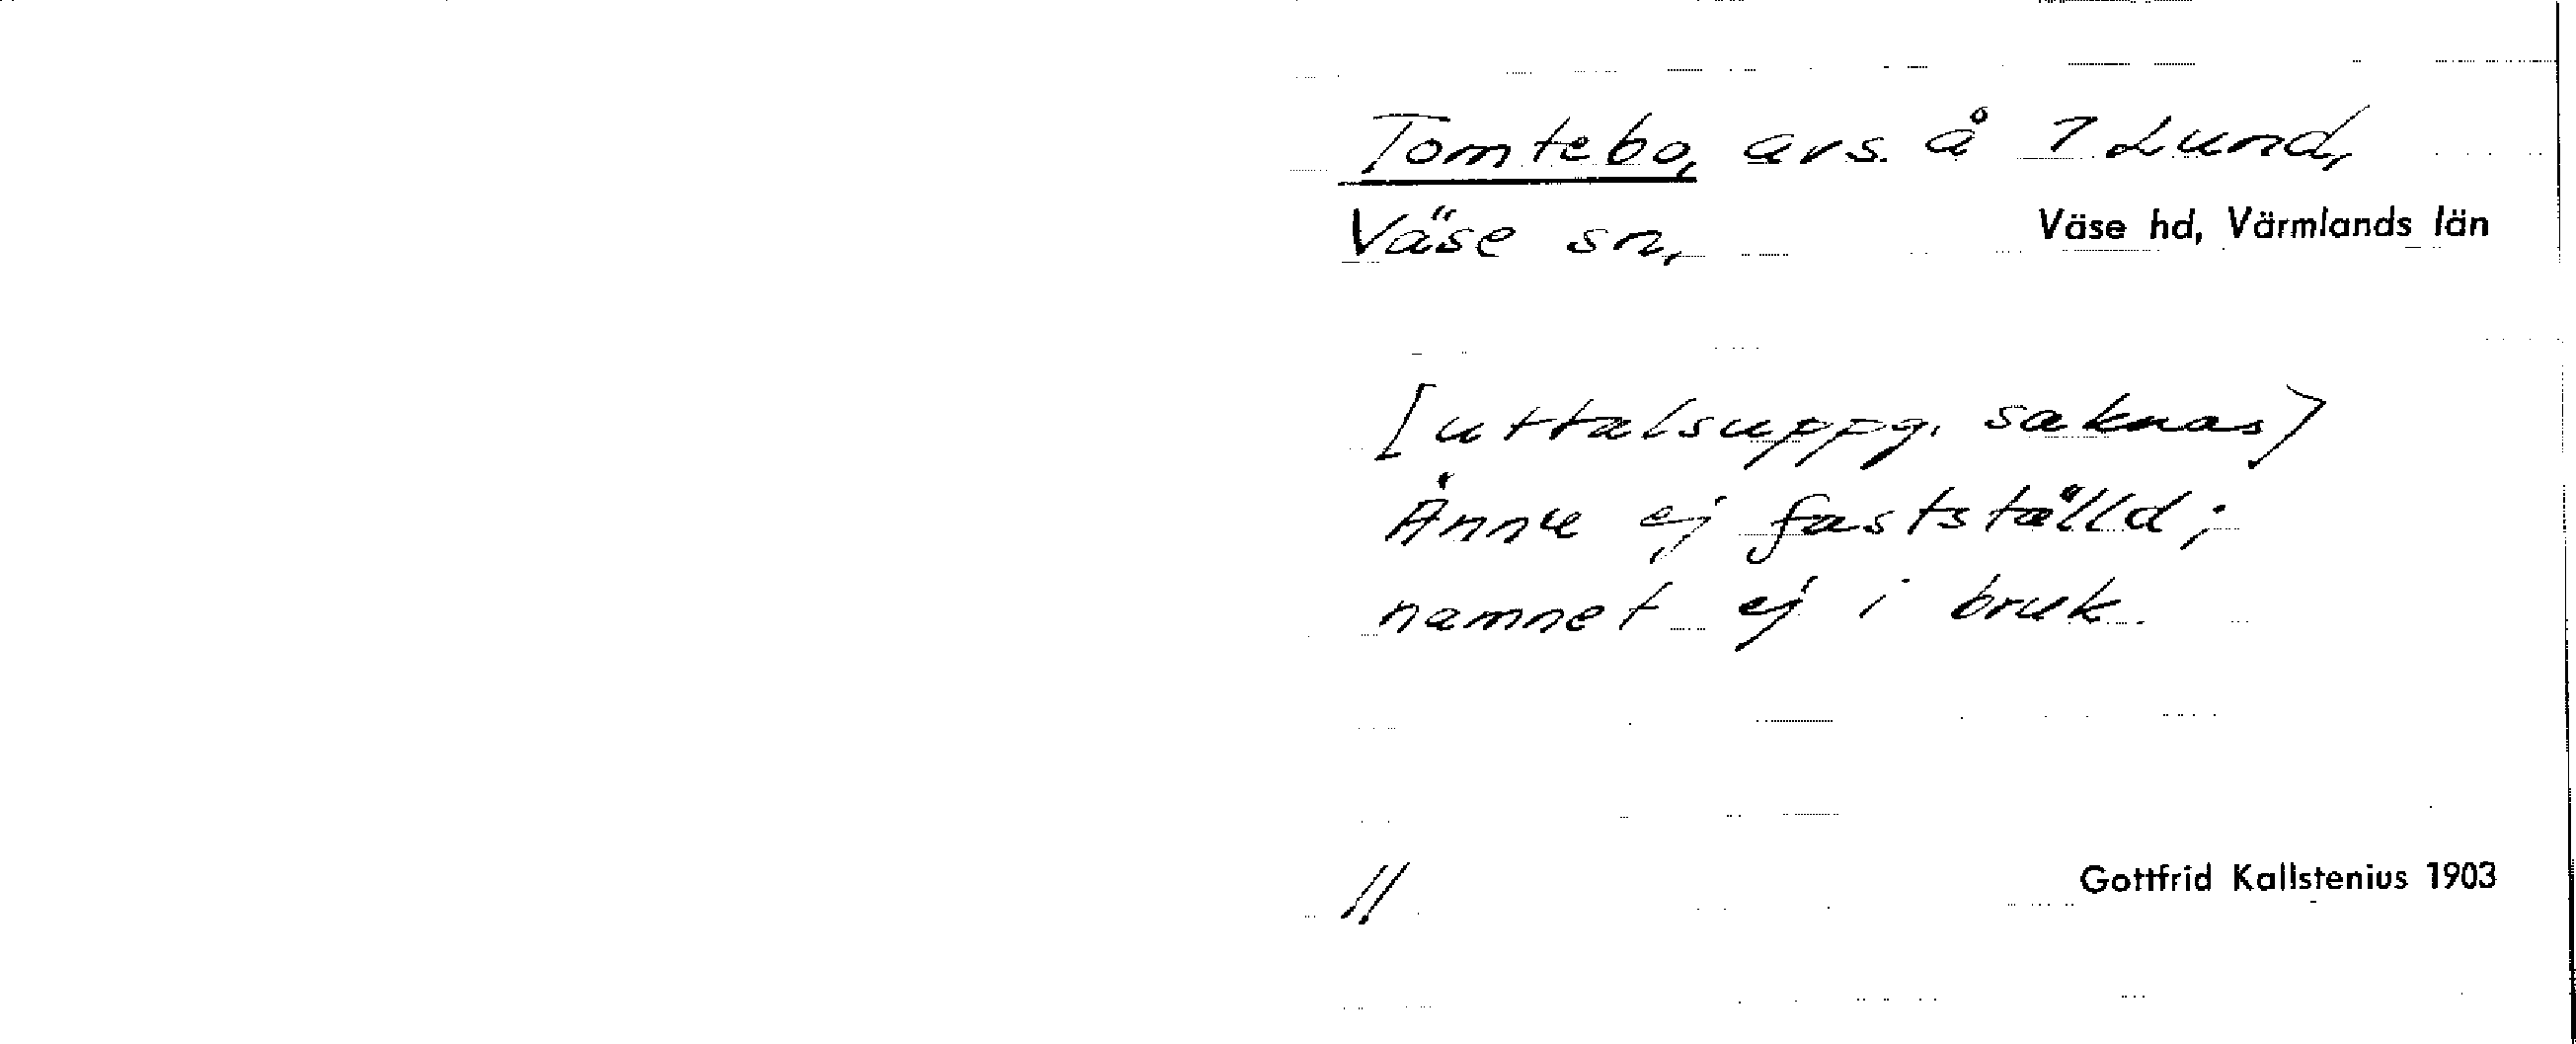 Tomtebo, avs. å 7 Lund,
Väse sn, Väse hd, Värmlands län
[uttalsuppg. saknas]
Ännu ej fastställd;
namnet ej i bruk.
// Gottfrid Kallstenius 1903